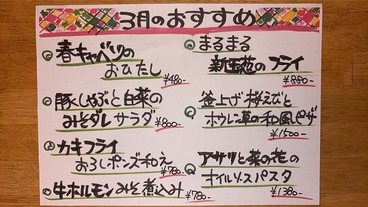 3月のおすすめ
春キャベツの
おひたし
¥480-
豚しゃぶと白菜の
みそダレサラダ ¥800-
カキフライ
おろしポンズ和え
¥780-
牛ホルモンみそ煮込み
¥780-
まるまる
新玉葱のフライ
¥550-
釜上げ桜えびと
ホウレン草の和風ピザ
¥1500-
アサリと菜の花の
オイルソースパスタ
¥1380-